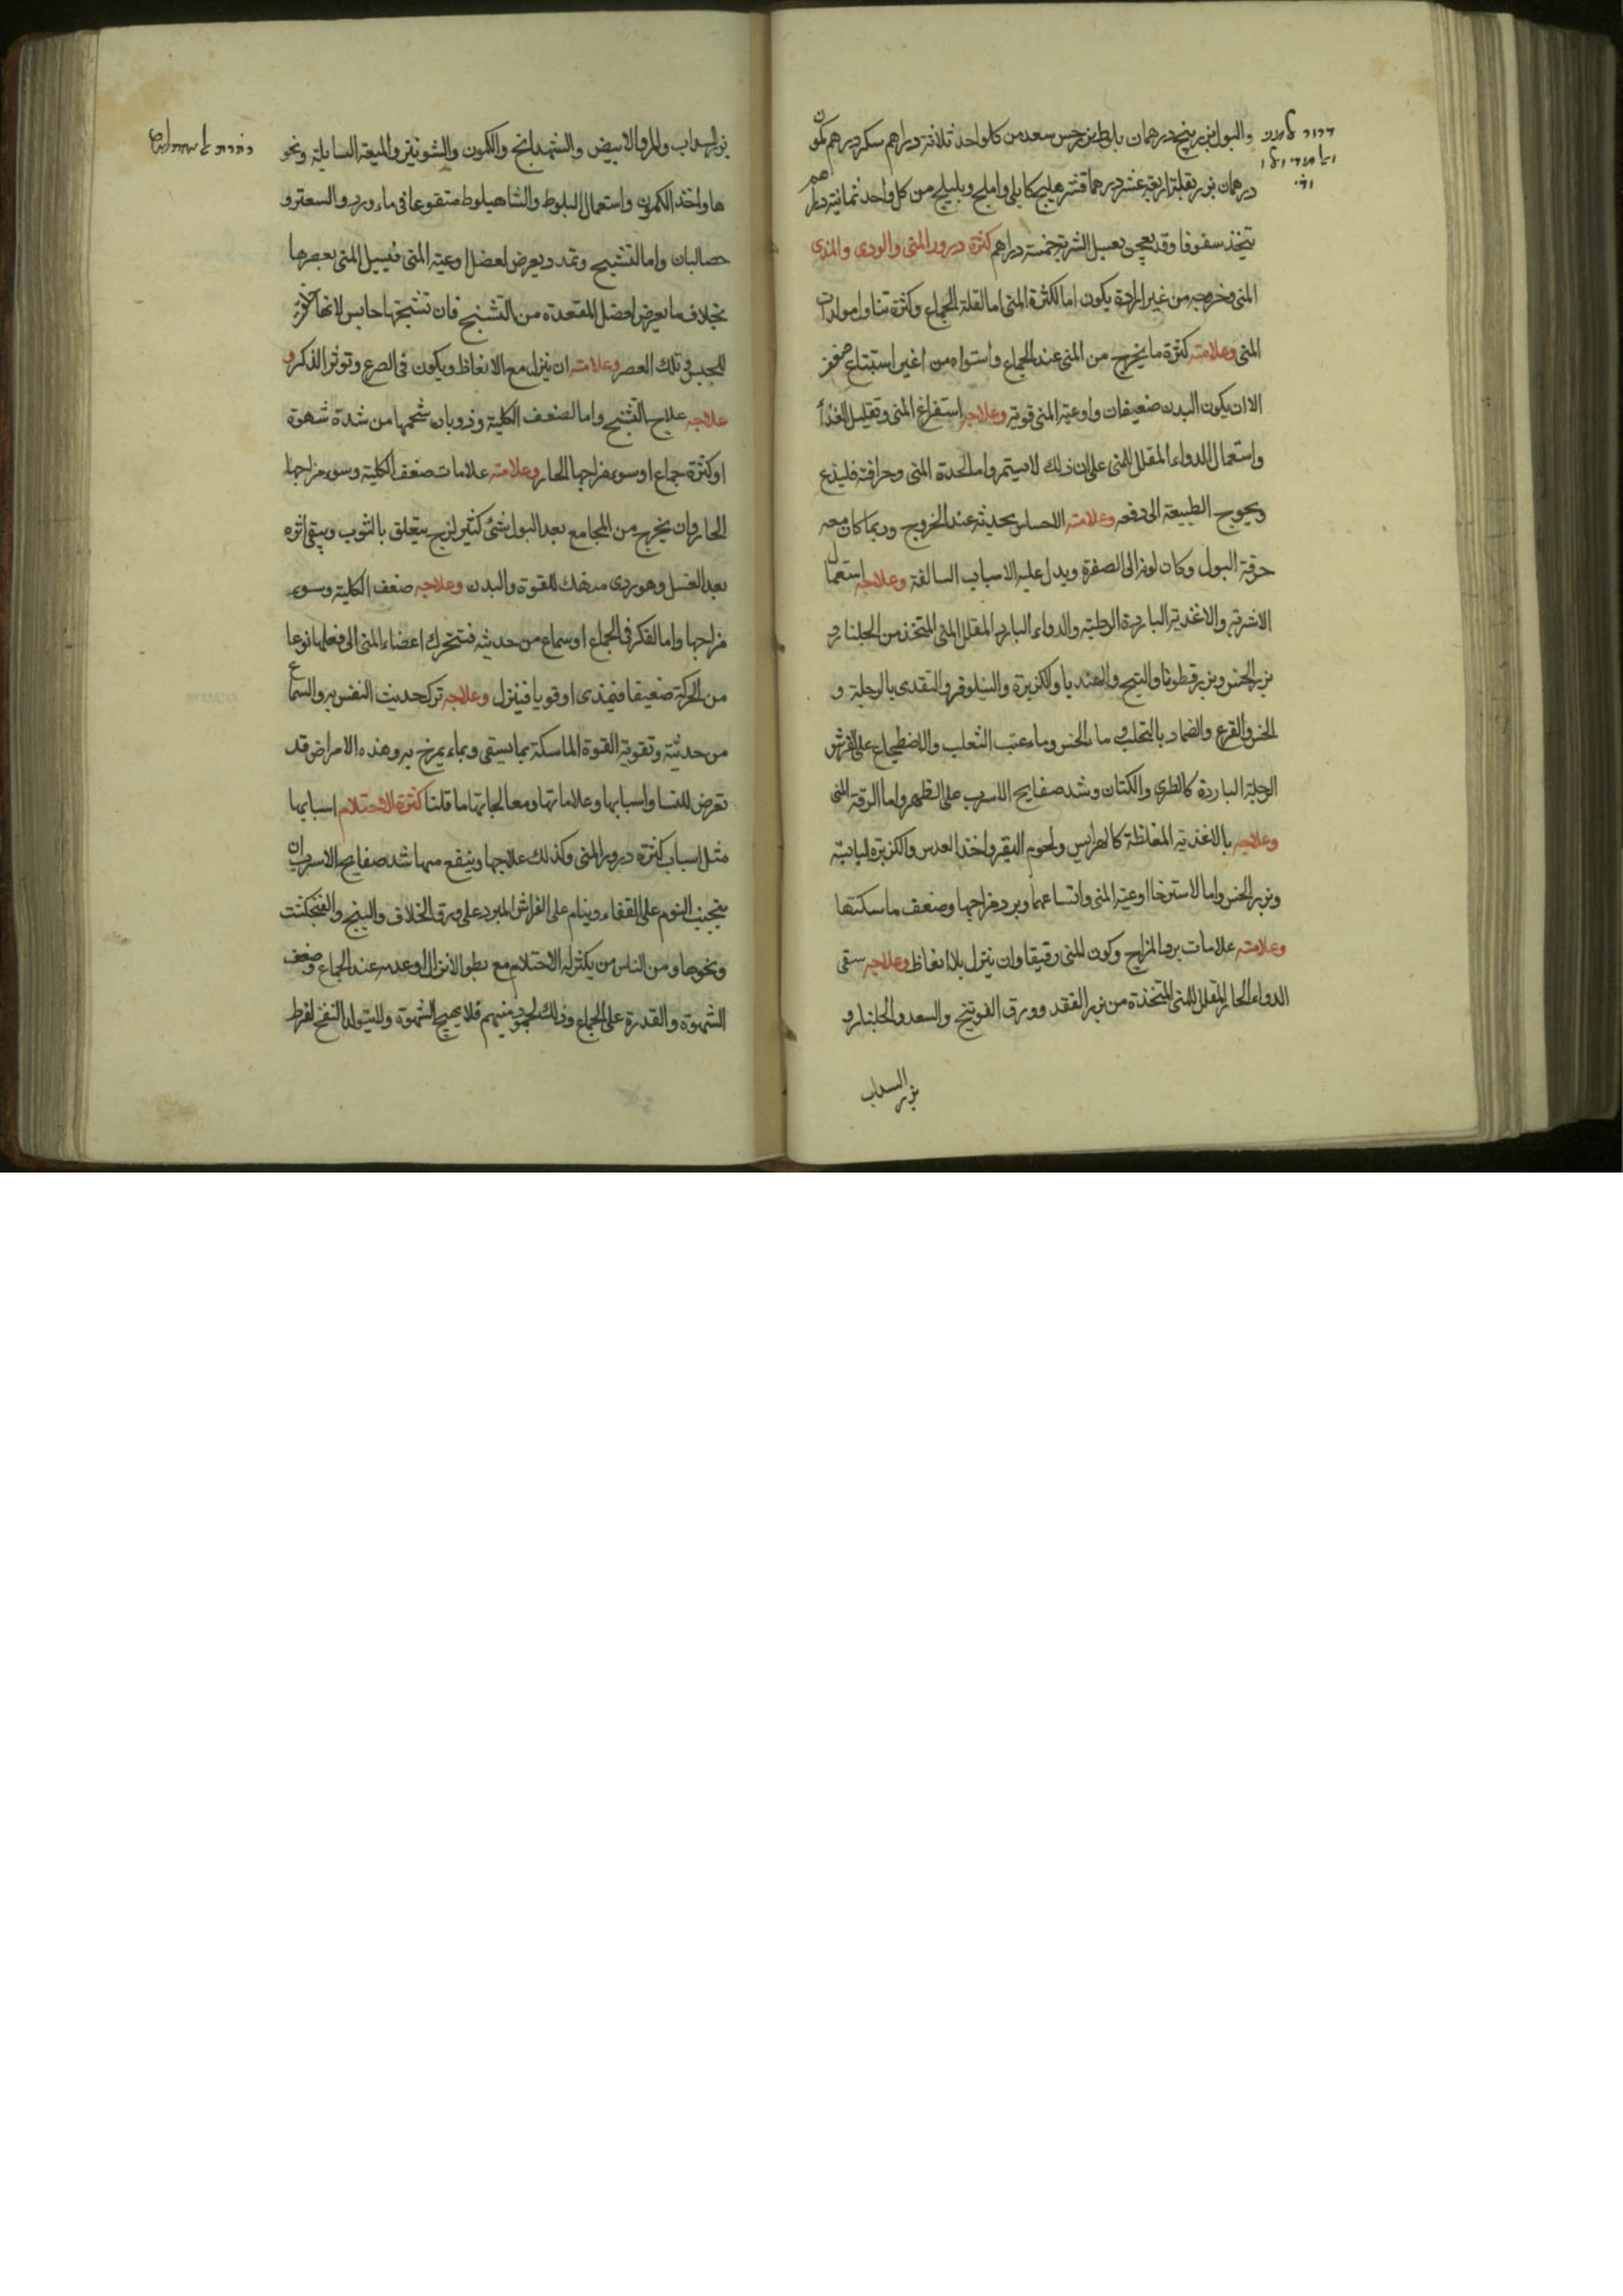 والبول بزر بنج درهمان بلوط بزر خس سعد من كل واحد ثلاثة دراهم سكر درهم كمون
درهمان بزر بقلة اربعة عشر درهما قشر هليلج كابلي واملج وبليلج من كل واحد ثمانية دراهم
يتخذ سفوفا وقد يعجن بعسل الشربة خمسة دراهم كثرة درور المنى والودى والمذى
المنى وخروجه من غير ارادة يكون اما لكثرة المنى اما لقلة الجماع وكثرة تناول مولدات
المنى وعلامته كثرة ما يخرج من المنى عند الجماع واستواه من غير استتباع ضعف
الا ان يكون البدن ضعيفا واوعية المنى قوية وعلاجه استفراغ المنى وتقليل الغذأ
واستعمال الدواء المقلل للمنى على ان ذلك لا يستمر واما لحدة المنى وحرافته فليذع
ويحوج الطبيعة الى دفعه وعلامته الاحساس بحديثه عند الخروج وربما كان معه
حرقة البول وكان لونه الى الصفرة ويدل عليه الاسباب السالفة وعلاجه استعمال
الاشربة والاغذية الباردة الرطبة والدواء البارد المقلل المنى المتخذ من الجلنار و
بزر الخس وبزر قطونا والبنج والهنديا والكزبرة والنيلوفر والتقدى بالرجلة و
الخس والقرع والضماد بالتحلب وماء الخس وماء عنب الثعلب والاضطجاع على الفرش
الرطبة الباردة كالطرى والكتان وشد صفايح الاسرب على الظهر واما لرقة المنى
وعلاجه بالاغذية المغلظة كالهرايس ولحوم البقر واخذ العدس والكزبرة اليابسة
وبزر الخس واما لاسترخاا اوعية المنى واتساعها وبرد مزاجها وضعف ماسكتها
وعلامته علامات برد المزاج وكون المنى رقيقا وان ينزل بلا انعاظ وعلاجه سقى
الدواء الحار المقلل للمنى المتخذة من بزر الفقد وورق الفوتنج والسعد والجلنار و
بزر السداب
بزر السداب والمر والابيض والشهدانج والكمون والشونيز والميعة السايلة ونحو
ها واخذ الكمون واستعمال البلوط والشاهبلوط منقوعا فى ماء ورد والسعتر و
حصالبان واما لتشنج وتمدد يعرض لعضل اوعية المنى فيسيل المنى بعصرها
بخلاف ما يعرض لعضل المقعدة من التشنج فان تشنجها حابس لانها
للحبس وتلك للعصر وعلامته ان ينزل مع الانعاظ ويكون فى الصرع وتوتر الذكر و
علاجه علاج التشنج واما لضعف الكلية وذوبان شحمها من شدة شهوة
او كثرة جماع او سوء مزاجها الحار وعلامته علامات ضعف الكلية وسوء مزاجها
الحار وان يخرج من المجامع بعد البول شئ كثير لزج يتعلق بالثوب ويبقى اثره
بعد الغسل وهو ردى منهك للقوة والبدن وعلاجه ضعف الكلية وسوء
مزاجها واما لفكر فى الجماع او سماع من حديثه فتتحرك اعضاء المنى الى فعلها نوعا
من الحركة ضعيفا فيمذى او قويا فينزل وعلاجه ترك حديث النفس به والسماع
من حديثه وتقوية القوة الماسكة بما يسقى وبماء يمرخ به وهذه الامراض قد
تعرض للنسا واسبابها وعلاماتها ومعالجاتها ما قلنا كثرة الاحتلام اسبابها
مثل اسباب كثرة درور المنى وكذلك علاجها وينفع منها شد صفايح الاسرب وان
يتجنب النوم على القفاء وينام على الفراش المبرد على ورق الخلاف والبنج والفنجكشت
ونحوها ومن الناس من يكثر له الاحتلام مع بطو الانزال او عدمه عند الجماع وضعف
الشهوة والقدرة على الجماع وذلك لجمود منيهم فلا يهيج الشهوة ولا يتولد النفخ لفرط